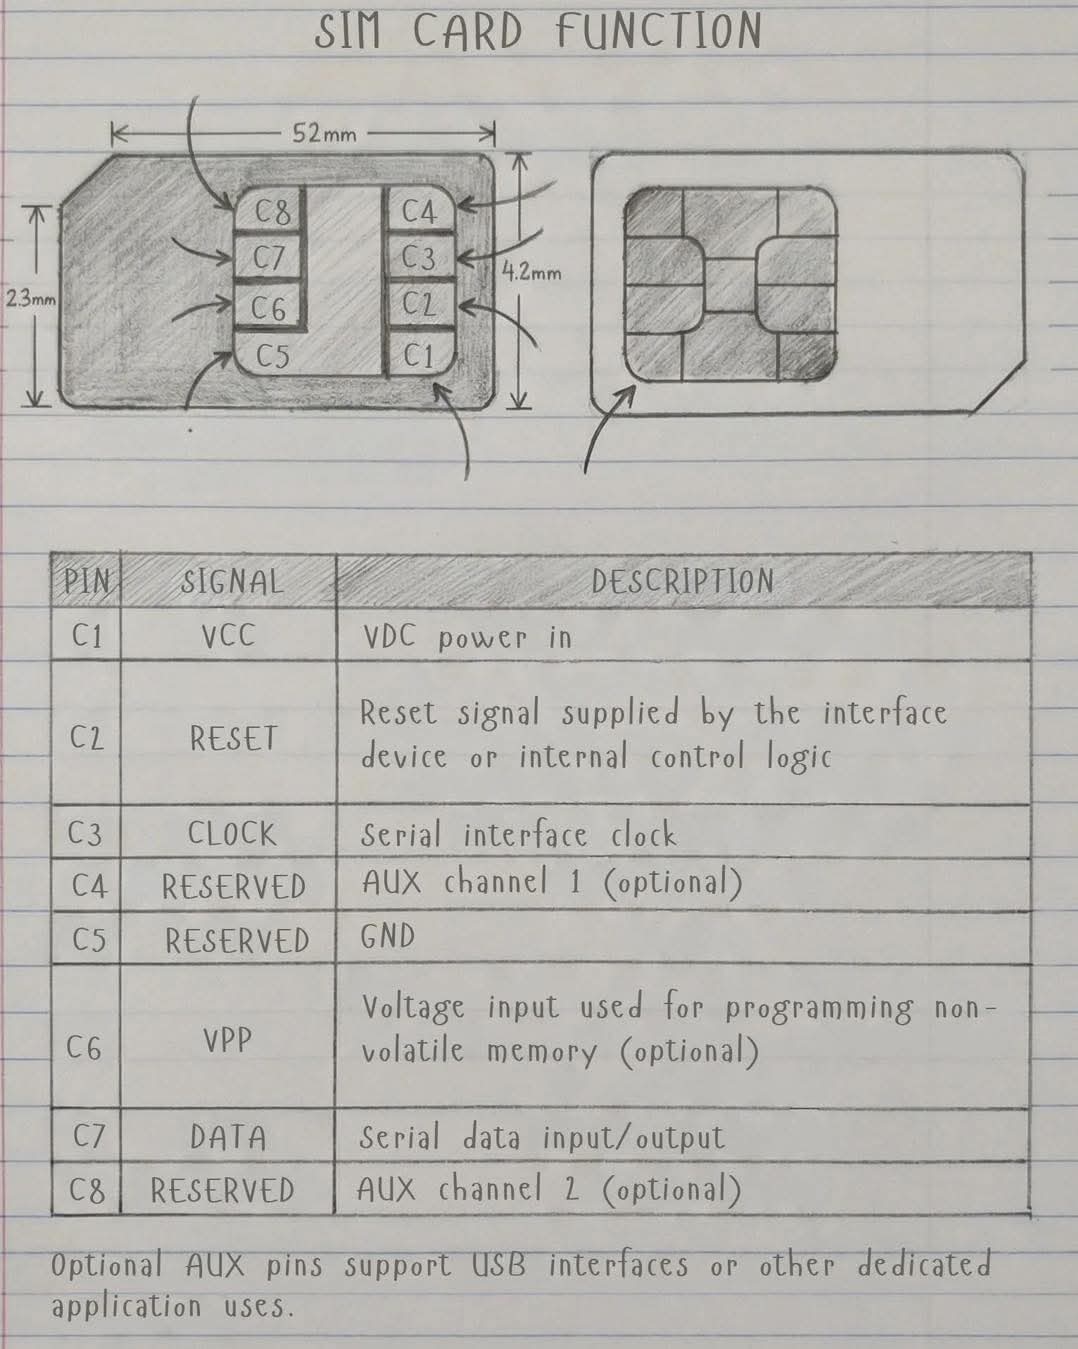 SIM CARD FUNCTION
52mm
C8 C4
C7 C3
4.2mm
2.3mm
C6 C2
C5 C1
PIN SIGNAL DESCRIPTION
C1 VCC VDC power in
C2 RESET Reset signal supplied by the interface
device or internal control logic
C3 CLOCK Serial interface clock
C4 RESERVED AUX channel 1 (optional)
C5 RESERVED GND
C6 VPP Voltage input used for programming non-
volatile memory (optional)
C7 DATA Serial data input/output
C8 RESERVED AUX channel 2 (optional)
Optional AUX pins support USB interfaces or other dedicated
application uses.